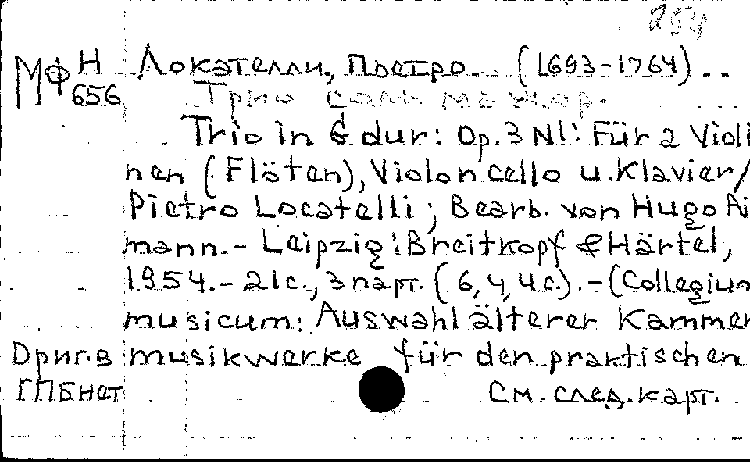 254
МФ Н Локателли, Пьетро. (1693-1764)
656 Трио соль мажор.
Trio in G dur: Op. 3 N1: Für 2 Violi
nen (Flöten), Violoncello u. Klavier/
Pietro Locatelli; Bearb. von Hugo Ri
mann.- Leipzig: Breitkopf & Härtel,
1954.- 21с., 3 парт. (6, 4, 4 с.).-(Collegium
musicum: Auswahl älterer Kammer
Ориг. в musikwerke für den praktischen
ГПБ нет См. след. карт.